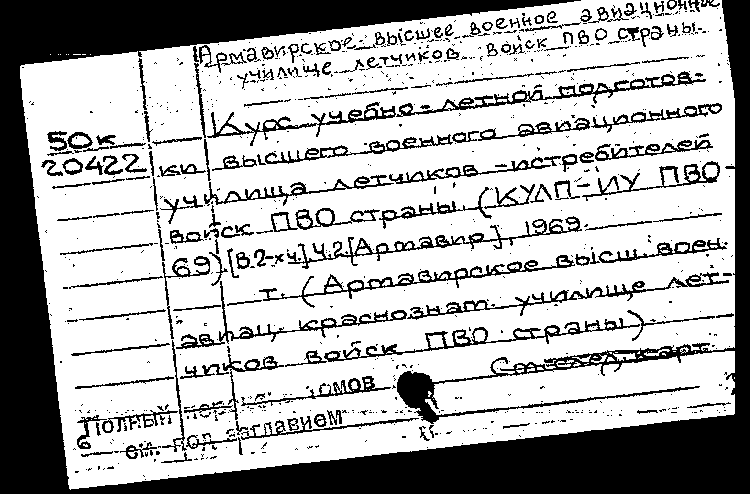 Армавирское высшее военное авиационное
училище летчиков войск ПВО страны.
Курс учебно-летной подготов-
50к
20422
ки высшего военного авиационного
училища летчиков-истребителей
войск ПВО страны. (КУЛП-ИУ ПВО-
69). [В 2-х ч.] Ч.2. [Армавир], 1969.
т. (Армавирское высш. воен.
авиац. краснознам. училище лет-
чиков войск ПВО страны).
См. след. карт.
Полный томов
6
см. под заглавием